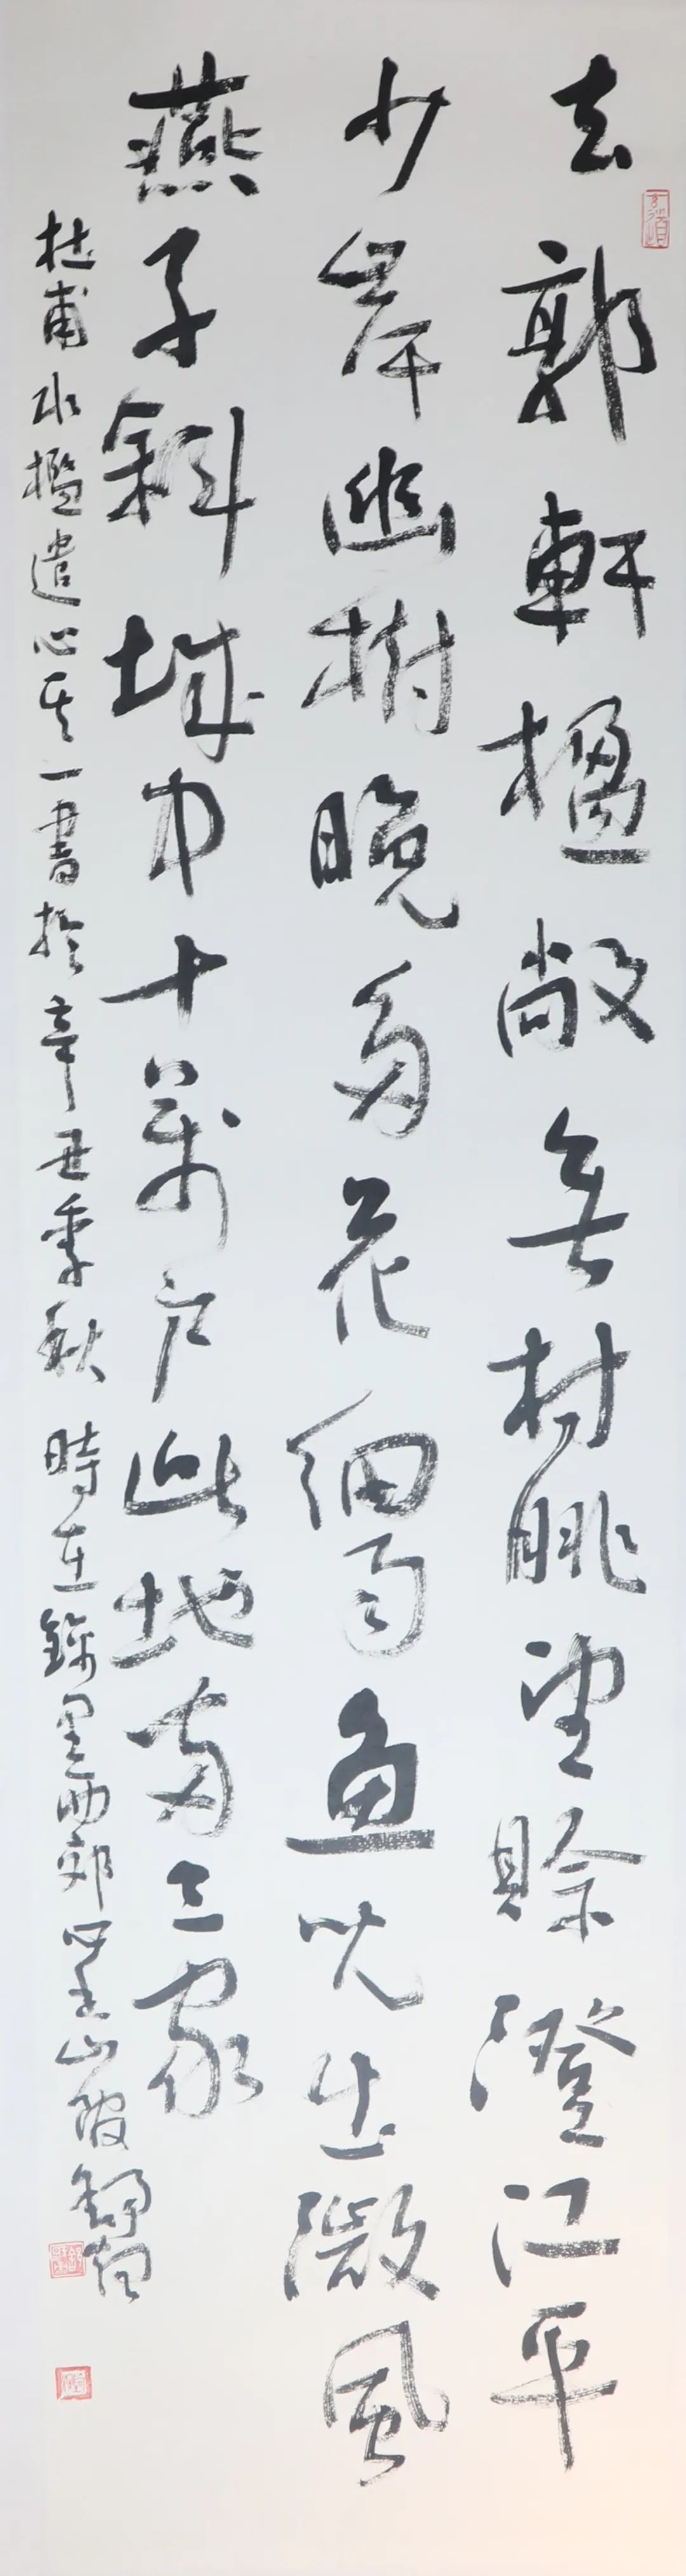 去郭軒楹敞無村眺望賒澄江平
少岸幽樹晚多花細雨魚兒出微風
燕子斜城中十萬戶此地兩三家
杜甫水檻遣心其一書於辛丑季秋時在錦里西郊